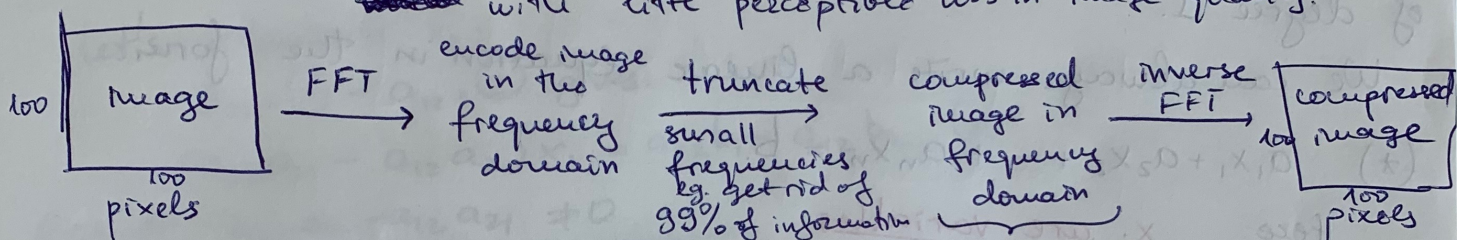 with little perceptible loss in image quality.
100
image
100
pixels
FFT
encode image
in the
frequency
domain
truncate
small
frequencies
eg. get rid of
99% of information
compressed
image in
frequency
domain
inverse
FFT
100
compressed
image
100
pixels